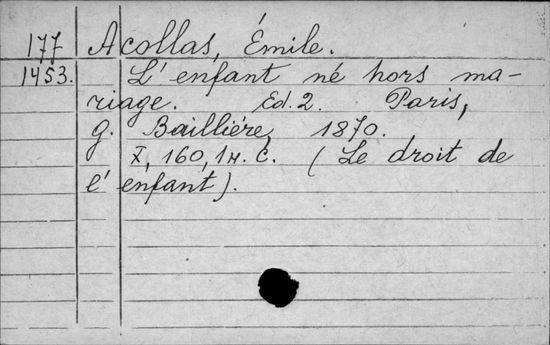 177 Acollas, Émile.
1453. L'enfant né hors ma-
riage. Ed. 2. Paris,
G. Baillière, 1870.
X, 160, 1 н. с. (Le droit de
l'enfant).